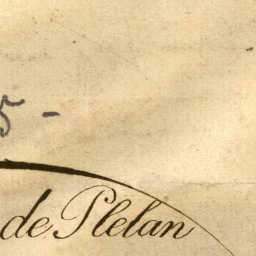 5 -
de Plélan